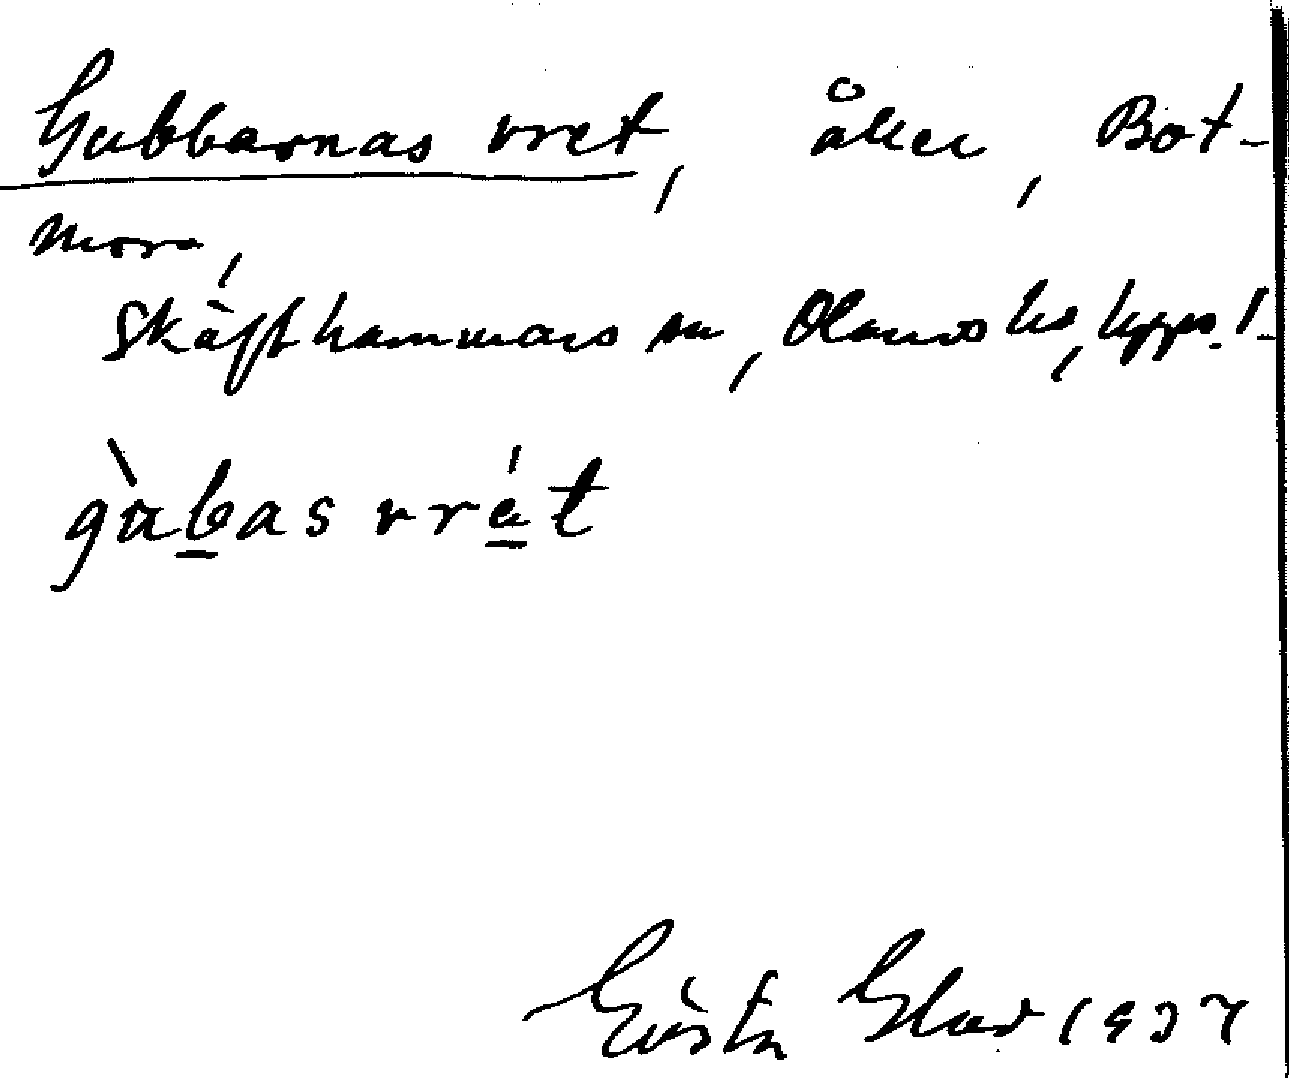 Gubbarnas vret, åker, Bot-
mora,
Skäfthammars sn, Olands hd, Upps. l.
gùbas vrét
Gösta Glad 1937